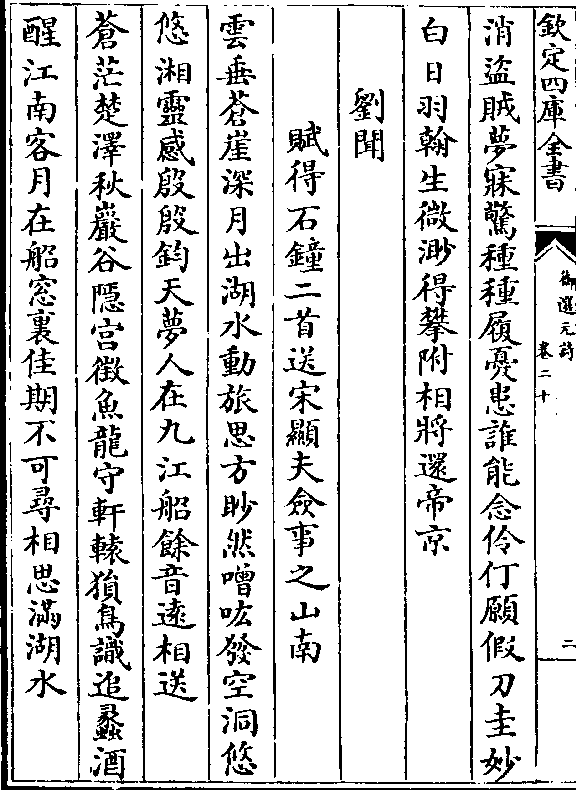 欽定四庫全書
御選元詩
卷二十
二
消盜賊夢寐驚種種履憂患誰能念伶仃願假刀圭妙
白日羽翰生微眇得攀附相將還帝京
劉聞
賦得石鐘二首送宋顯夫僉事之山南
雲垂蒼崖深月出湖水動旅思方眇然噌吰發空洞悠
悠湘靈感殷殷鈞天夢人在九江船餘音遠相送
蒼茫楚澤秋巖谷隱宮徵魚龍守軒轅猿鳥識追蠡酒
醒江南客月在船窓裏佳期不可尋相思滿湖水